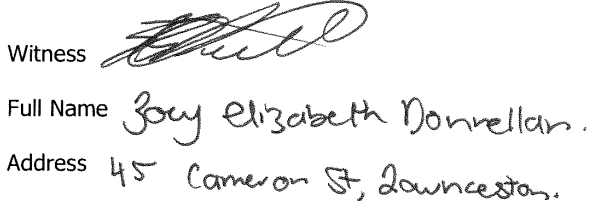 Witness
Full Name Zoey Elizabeth Donnellan.
Address 45 Cameron St, Launceston.